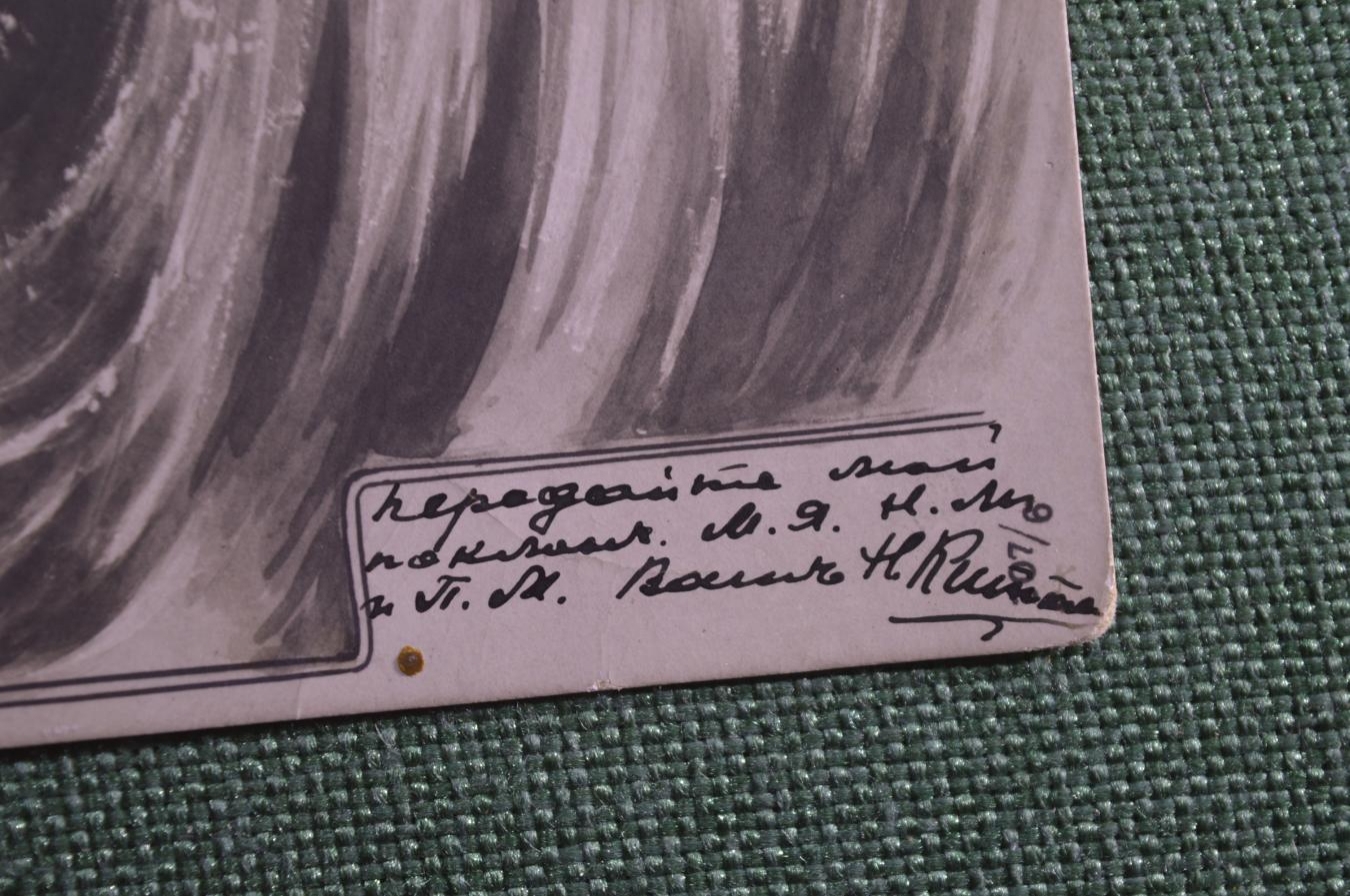 передайте мой
поклонъ М. Я. Н. М.
и П. М. Вашъ Н